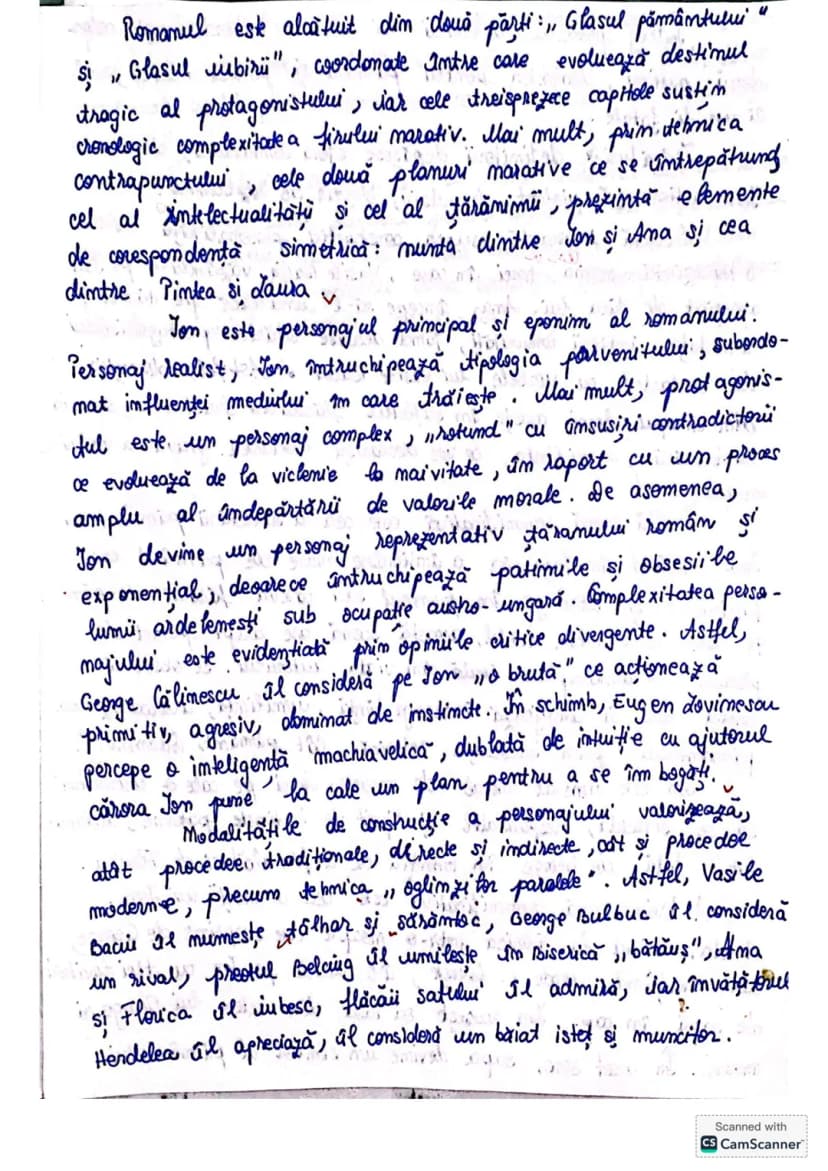 Romanul este alcătuit din două părți: „Glasul pământului"
și „Glasul iubirii", coordonate între care evoluează destinul
tragic al protagonistului, iar cele treisprezece capitole susțin
cronologic complexitatea firului narativ. Mai mult, prin tehnica
contrapunctului, cele două planuri narative ce se întrepătrund
cel al intelectualității și cel al țărănimii, prezintă elemente
de corespondență simetrică: nunta dintre Ion și Ana și cea
dintre Pintea și Laura
Ion este personajul principal și eponim al romanului.
Personaj realist, Ion, întruchipează tipologia parvenitului, subordo-
nat influenței mediului în care trăiește. Mai mult, protagonis-
tul este un personaj complex, „rotund" cu însușiri contradictorii
ce evoluează de la viclenie la naivitate, în raport cu un proces
amplu al îndepărtării de valorile morale. De asemenea,
Ion devine un personaj reprezentativ țăranului român și
exponențial, deoarece întruchipează patimile și obsesiile
lumii ardelenești sub ocupație austro-ungară. Complexitatea perso-
najului este evidențiată prin opiniile critice divergente. Astfel,
George Călinescu îl consideră pe Ion „o brută" ce acționează
primitiv, agresiv, dominat de instincte. În schimb, Eugen Lovinescu
percepe o inteligență "machiavelică", dublată de intuiție cu ajutorul
cărora Ion pune la cale un plan pentru a se îmbogăți.
Modalitățile de construcție a personajului valorizează,
atât procedee tradiționale, directe și indirecte, cât și procedee
moderne, precum tehnica „oglinzilor paralele". Astfel, Vasile
Baciu îl numește tâlhar și sărăntoc, George Bulbuc îl consideră
un rival, preotul Belciug îl umilește în Biserică „bătăuș", Ana
și Florica îl iubesc, flăcăii satului îl admiră, iar învățătorul
Herdelea îl apreciază, îl consideră un băiat isteț și muncitor.
Scanned with
CS CamScanner